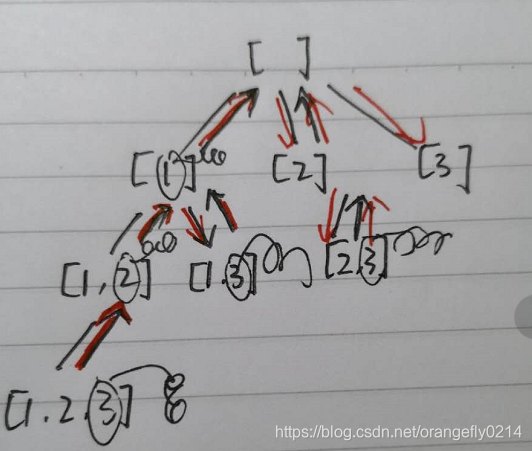 [ ]
[1] [2] [3]
[1,2] [1.3] [2.3]
[1.2.3]
https://blog.csdn.net/orangefly0214